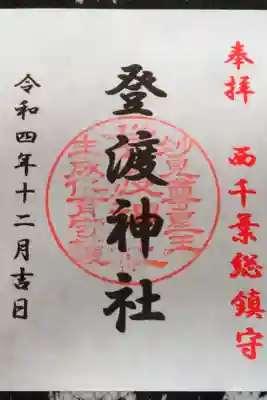 奉拝 西千葉総鎮守
登渡神社
妙見尊星王
令和四年十二月吉日